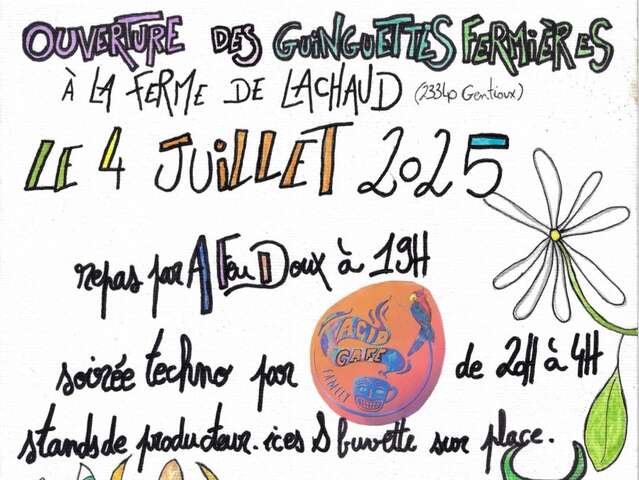 OUVERTURE DES GUINGUETTES FERMIÈRES
À LA FERME DE LACHAUD (23340 Gentioux)
LE 4 JUILLET 2025
repas par A Feu Doux à 19H
soirée techno par ACID CAFE FAMILY de 20H à 4H
stands de producteur.ices & buvette sur place.